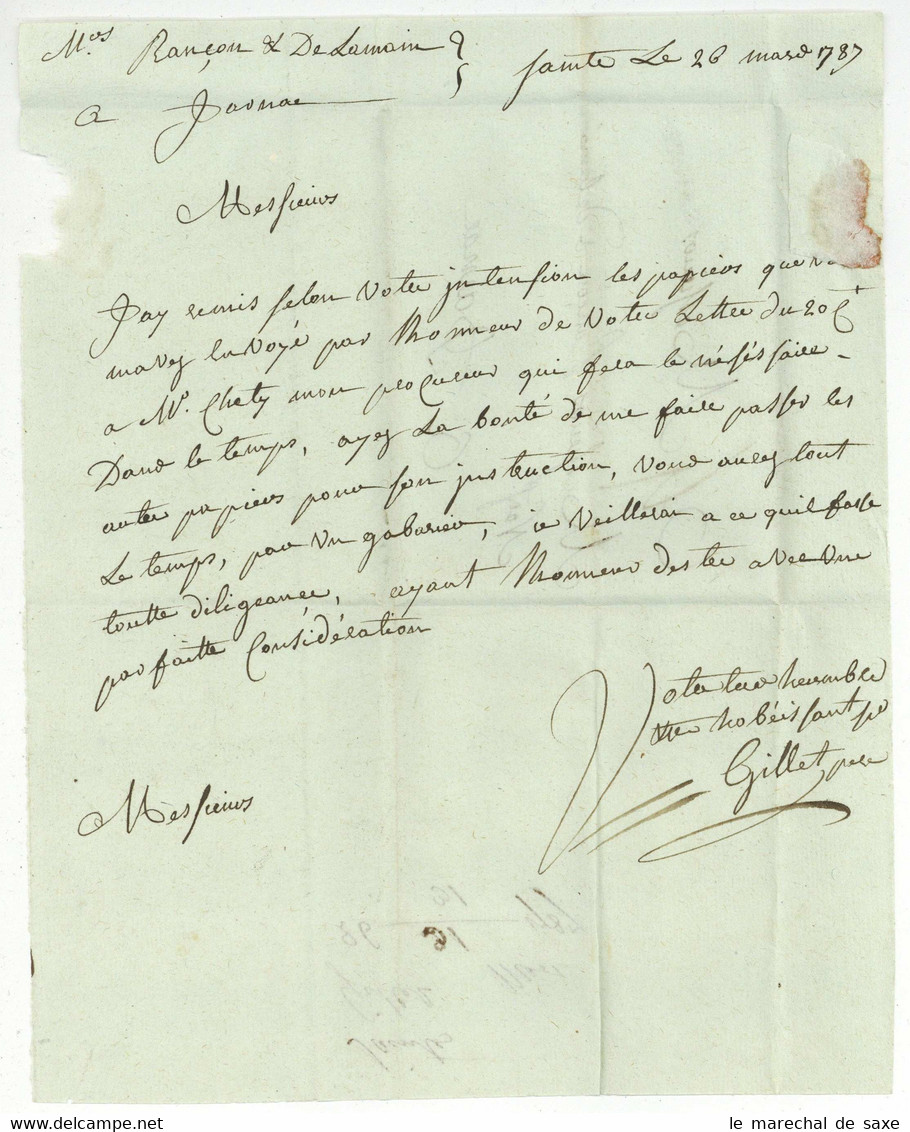 Mrs Rançon & De Lamain
a Jarnac
Sainte Le 26 mars 1787
Messieurs
Jay remis selon Votre jntension les papiers que v
mavez Envoyé par lhonneur de Votre Lettre du 20 Ct
a Mr. Chety mon proçureur qui fera le néséssaire
Dans le temps, ayez La bonté de me faire passer les
autre papiers pour son jnstruction, vous aurez tout
Le temps, par un gabarier, je veilleray a ce quil fasse
toutte diligeance, ayant lhonneur destre avec une
parfaitte Considération
Messieurs
Votre tres humble
tres hobéissant sr
Gillet pere
le marechal de saxe